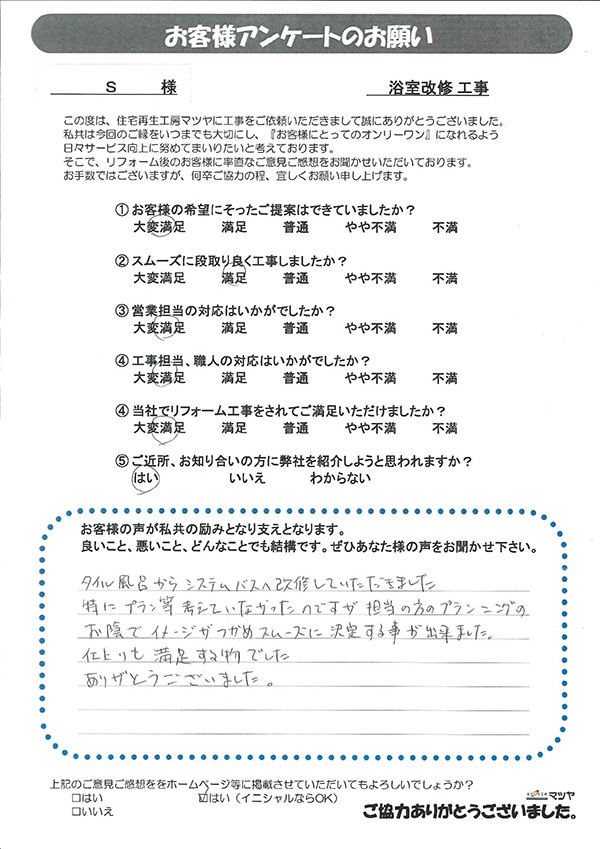 お客様アンケートのお願い
S 様
浴室改修 工事
この度は、住宅再生工房マツヤに工事をご依頼いただきまして誠にありがとうございました。
私共は今回のご縁をいつまでも大切にし、『お客様にとってのオンリーワン』になれるよう
日々サービス向上に努めてまいりたいと考えております。
そこで、リフォーム後のお客様に率直なご意見ご感想をお聞かせいただいております。
お手数ではございますが、何卒ご協力の程、宜しくお願い申し上げます。
①お客様の希望にそったご提案はできていましたか？
大変満足 満足 普通 やや不満 不満
②スムーズに段取り良く工事しましたか？
大変満足 満足 普通 やや不満 不満
③営業担当の対応はいかがでしたか？
大変満足 満足 普通 やや不満 不満
④工事担当、職人の対応はいかがでしたか？
大変満足 満足 普通 やや不満 不満
④当社でリフォーム工事をされてご満足いただけましたか？
大変満足 満足 普通 やや不満 不満
⑤ご近所、お知り合いの方に弊社を紹介しようと思われますか？
はい いいえ わからない
お客様の声が私共の励みとなり支えとなります。
良いこと、悪いこと、どんなことでも結構です。ぜひあなた様の声をお聞かせ下さい。
タイル風呂からシステムバスへ改修していただきました
特にプラン等考えていなかったのですが担当の方のプランニングの
お陰でイメージがつかめスムーズに決定する事が出来ました。
仕上りも満足する物でした
ありがとうございました。
上記のご意見ご感想ををホームページ等に掲載させていただいてもよろしいでしょうか？
□はい ☑はい（イニシャルならOK）
□いいえ
マツヤ
ご協力ありがとうございました。